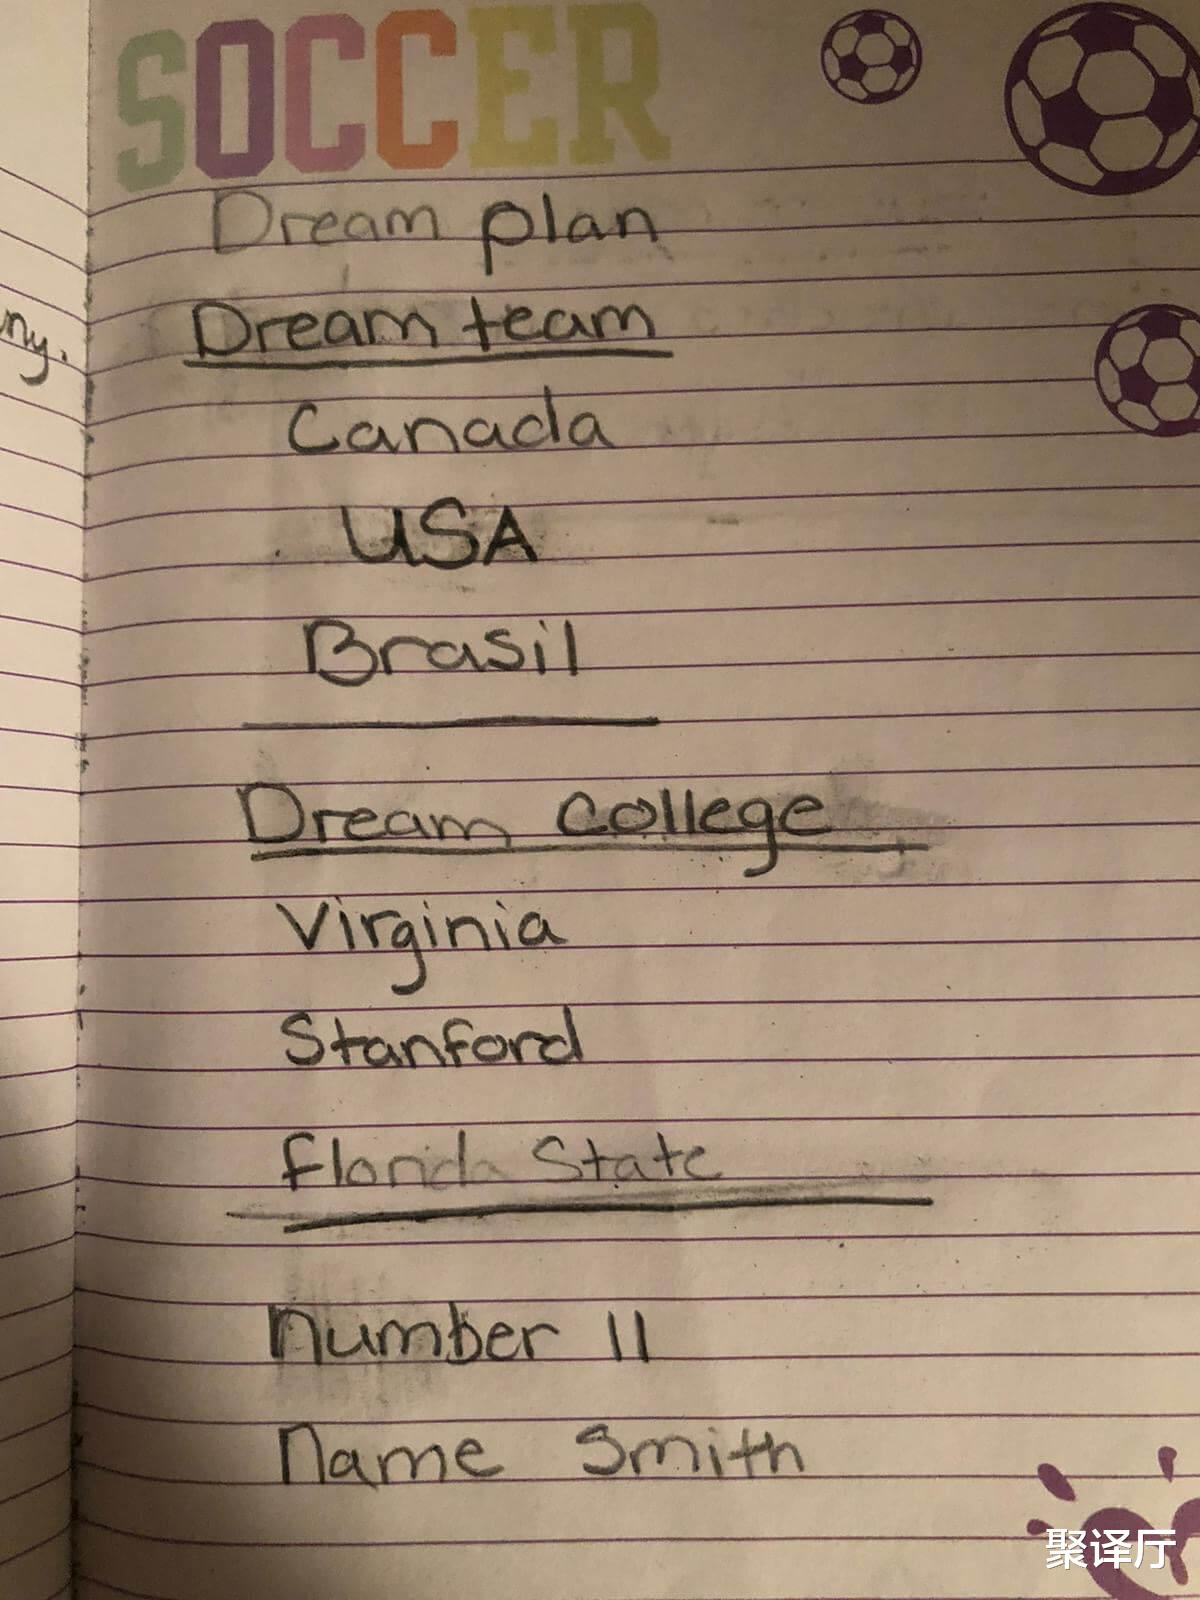 SOCCER
Dream plan
ny.
Dream team
Canada
USA
Brasil
Dream college
Virginia
Stanford
florida State
number 11
name Smith
聚译厅